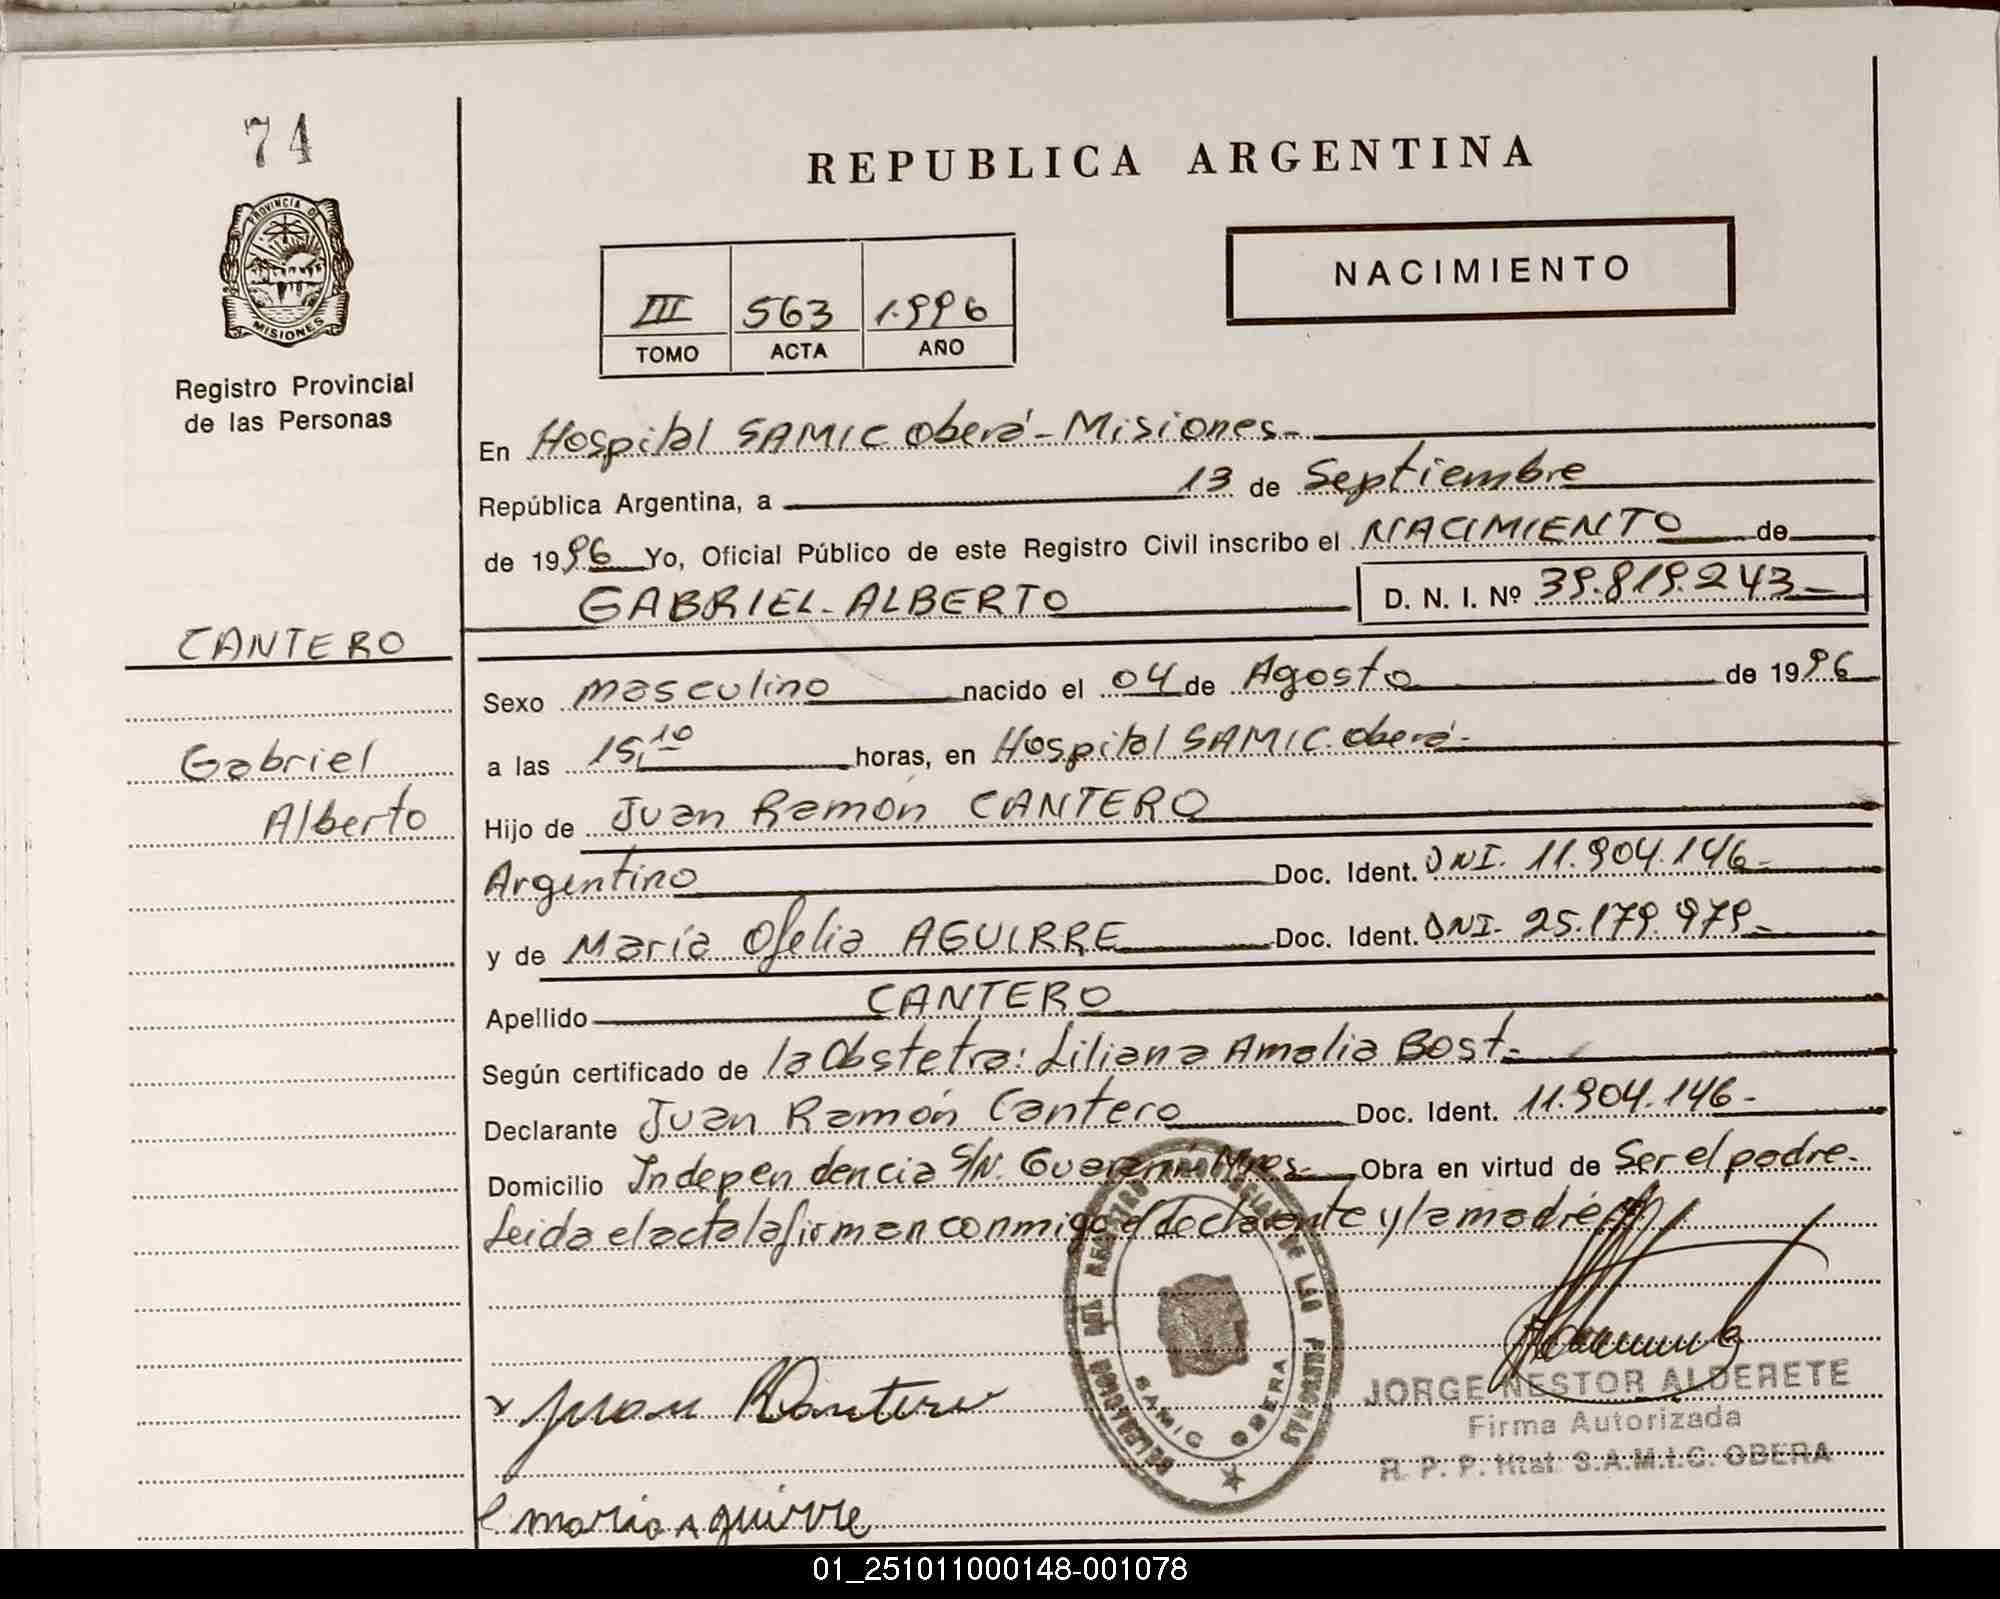 74
REPUBLICA ARGENTINA
PROVINCIA DE
MISIONES
Registro Provincial
de las Personas
NACIMIENTO
III 563 1.996
TOMO ACTA AÑO
En Hospital SAMIC Oberá - Misiones -
República Argentina, a 13 de Septiembre
de 1996 Yo, Oficial Público de este Registro Civil inscribo el NACIMIENTO de
GABRIEL ALBERTO D. N. I. Nº 39.819.243
CANTERO
Sexo masculino nacido el 04 de Agosto de 1996
Gabriel
a las 15,10 horas, en Hospital SAMIC. Oberá -
Alberto
Hijo de Juan Ramón CANTERO
Argentino Doc. Ident. DNI. 11.904.146 -
y de María Ofelia AGUIRRE Doc. Ident. DNI. 25.179.979 -
Apellido CANTERO
Según certificado de la Obstetra: Liliana Amalia Bost -
Declarante Juan Ramón Cantero Doc. Ident. 11.904.146 -
Domicilio Independencia S/N. Guaraní Mnes - Obra en virtud de Ser el padre -
Leida el acta la firman conmigo el declarante y la madre
DELEGACION DEL REGISTRO PROVINCIAL DE LAS PERSONAS
SAMIC OBERA
Juan R Cantero
JORGE NESTOR ALDERETE
Firma Autorizada
R. P. P. Htal. S.A.M.I.C. OBERA
maria Aguirre
01_251011000148-001078